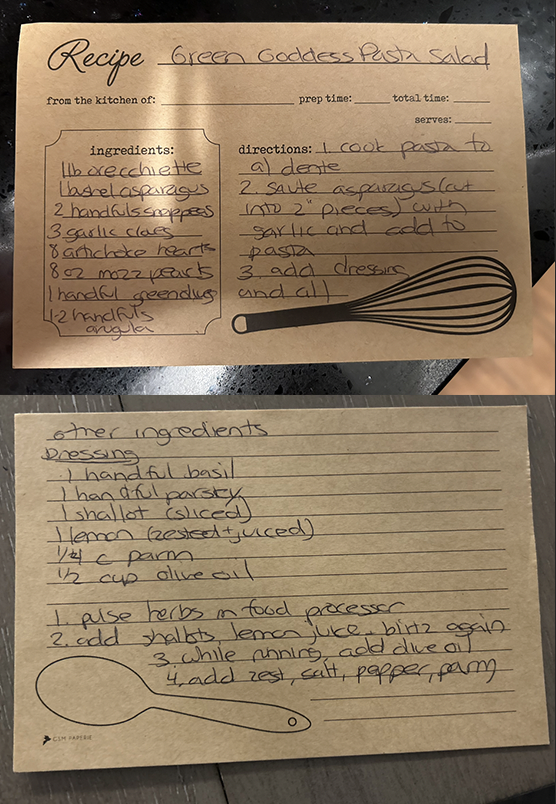 Recipe Green Goddess Pasta Salad
from the kitchen of: prep time: total time:
serves:
ingredients:
1lb orecchiette
1 bushel asparagus
2 handfuls snap peas
3 garlic cloves
8 artichoke hearts
8 oz mozz pearls
1 handful green olives
1-2 handfuls
arugula
directions: 1. cook pasta to
al dente
2. saute asparagus (cut
into 2" pieces) with
garlic and add to
pasta
3. add dressing
and all
other ingredients
Dressing
1 handful basil
1 handful parsley
1 shallot (sliced)
1 lemon (zested + juiced)
1/4 c parm
1/2 cup olive oil
1. pulse herbs in food processor
2. add shallots, lemon juice. blitz again
3. while running, add olive oil
4. add zest, salt, pepper, parm
CSM PAPERIE